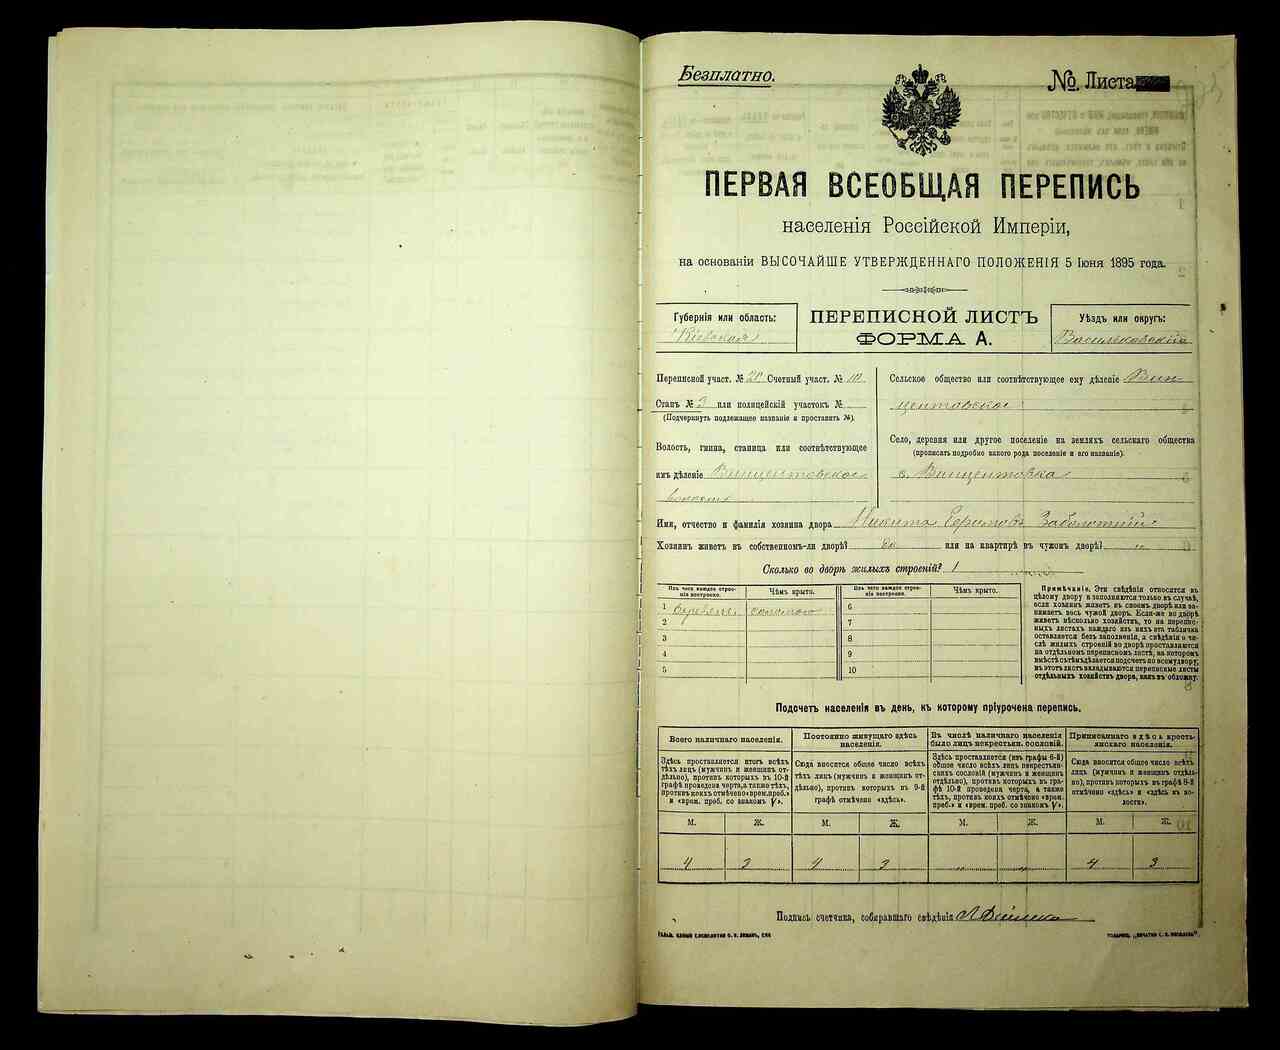 Безплатно.
№. Листа
ПЕРВАЯ ВСЕОБЩАЯ ПЕРЕПИСЬ
населенія Россійской Имперіи,
на основаніи ВЫСОЧАЙШЕ УТВЕРЖДЕННАГО ПОЛОЖЕНІЯ 5 Іюня 1895 года.
Губернія или область:
Кіевская
ПЕРЕПИСНОЙ ЛИСТЪ
ФОРМА А.
Уѣздъ или округъ:
Васильковскій
Переписной участ. № Счетный участ. № 10
Станъ № 3 или полицейскій участокъ №
(Подчеркнуть подлежащее названіе и проставить №).
Волость, гмина, станица или соотвѣтствующее
имъ дѣленіе Винцентовское
волость
Сельское общество или соотвѣтствующее ему дѣленіе Вин
центовское
Село, деревня или другое поселеніе на земляхъ сельскаго общества
(прописать подробно какого рода поселеніе и его названіе).
с. Винцентовка
Имя, отчество и фамилія хозяина двора Никита Ефимовъ Заболотній
Хозяинъ живетъ въ собственномъ-ли дворѣ? или на квартирѣ въ чужомъ дворѣ? „
Сколько во дворѣ жилыхъ строеній? 1
Изъ чего каждое строе-
ніе построено.
Чѣмъ крыто.
Изъ чего каждое строе-
ніе построено.
Чѣмъ крыто.
1 соломою 6
2 7
3 8
4 9
5 10
Примѣчаніе. Эти свѣдѣнія относятся къ
цѣлому двору и заполняются только въ случаѣ,
если хозяинъ живетъ въ своемъ дворѣ или за-
нимаетъ весь чужой дворъ. Если-же во дворѣ
живетъ нѣсколько хозяйствъ, то на перепис-
ныхъ листахъ каждаго изъ нихъ эта табличка
оставляется безъ заполненія, а свѣдѣнія о чи-
слѣ жилыхъ строеній во дворѣ проставляются
на отдѣльномъ переписномъ листѣ, на которомъ
вмѣстѣ съ тѣмъ дѣлается подсчетъ по всему двору;
въ этотъ листъ вкладываются переписные листы
отдѣльныхъ хозяйствъ двора, какъ въ обложку.
Подсчетъ населенія въ день, къ которому пріурочена перепись.
Всего наличнаго населенія.
Здѣсь проставляется итогъ всѣхъ
тѣхъ лицъ (мужчинъ и женщинъ от-
дѣльно), противъ которыхъ въ 10-й
графѣ проведена черта, а также тѣхъ,
противъ коихъ отмѣчено «врем. преб.»
и «врем. преб. со знакомъ V».
Постоянно живущаго здѣсь
населенія.
Сюда вносится общее число всѣхъ
тѣхъ лицъ (мужчинъ и женщинъ от-
дѣльно), противъ которыхъ въ 9-й
графѣ отмѣчено «здѣсь».
Въ числѣ наличнаго населенія
было лицъ некрестьян. сословій.
Здѣсь проставляется (изъ графы 6-й)
общее число всѣхъ лицъ некрестьян-
скихъ сословій (мужчинъ и женщинъ
отдѣльно), противъ которыхъ въ гра-
фѣ 10-й проведена черта, а также
тѣхъ, противъ коихъ отмѣчено «врем.
преб.» и «врем. преб. со знакомъ V».
Приписаннаго здѣсь кресть-
янскаго населенія.
Сюда вносится общее число всѣхъ
лицъ (мужчинъ и женщинъ отдѣль-
но), противъ которыхъ въ графѣ 8-й
отмѣчено «здѣсь» и «здѣсь въ во-
лости».
М. Ж. М. Ж. М. Ж. М. Ж.
4 3 4 3 „ „ 4 3
Подпись счетчика, собиравшаго свѣдѣнія